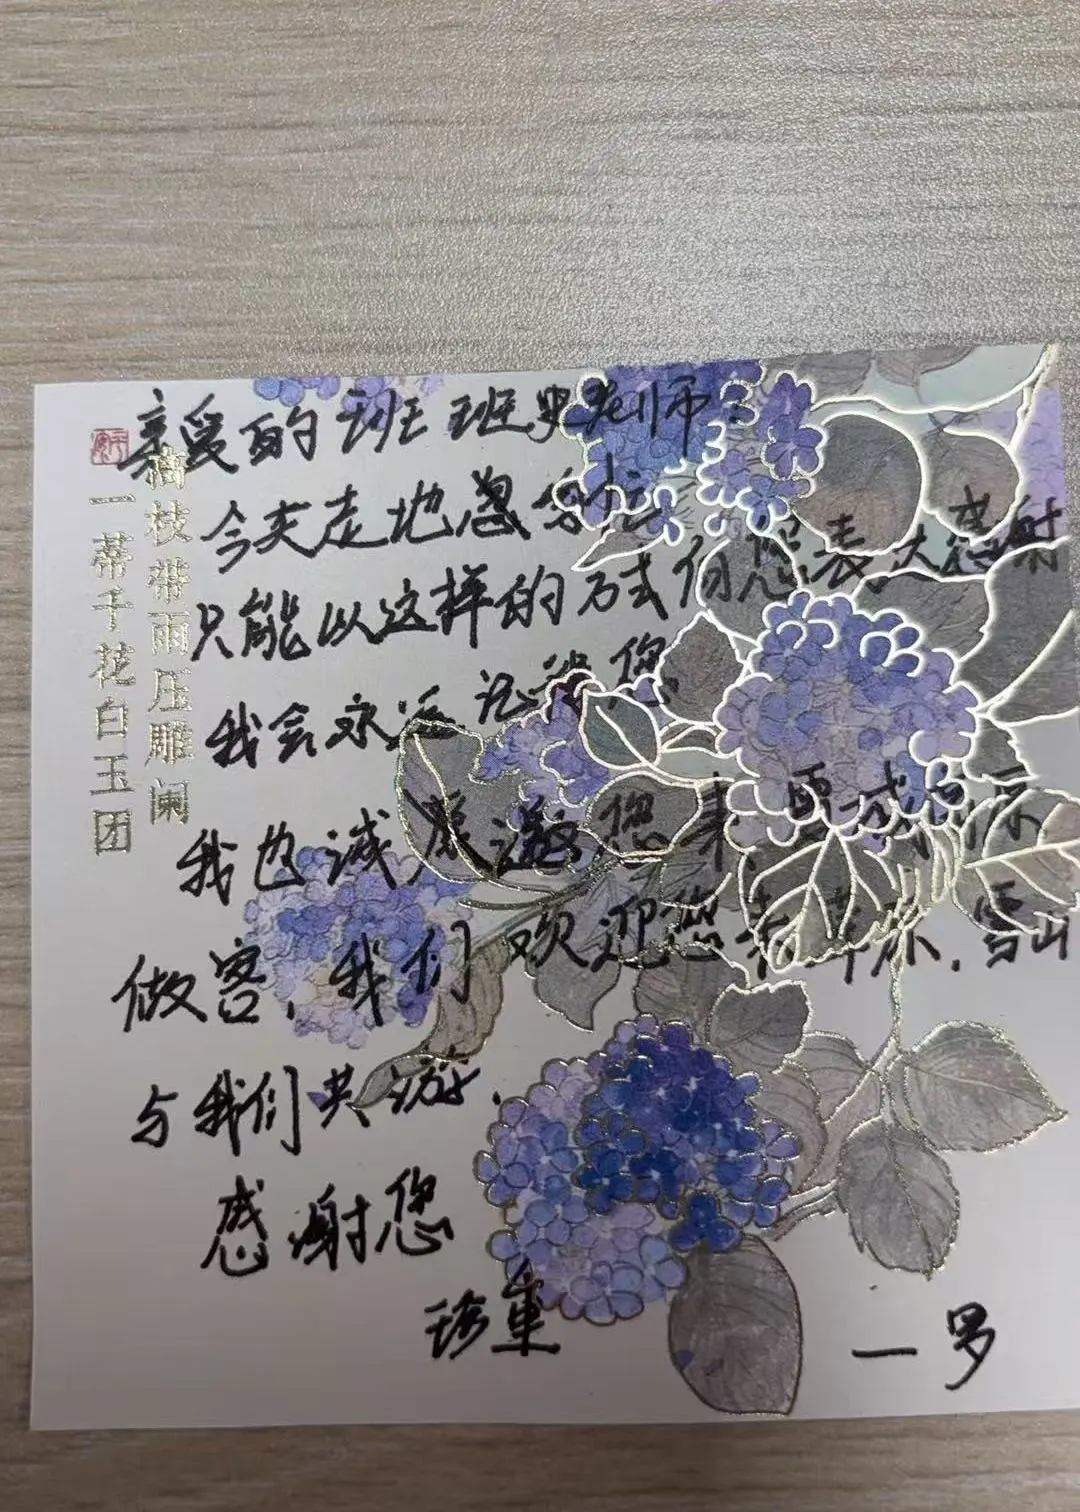 亲爱的班班史老师：
今天走地忽匆忙
只能以这样的方式向您表大感谢
我会永远记得您
我也诚 邀您来
做客，我们欢迎您 ，雪山
与我们共游．
感谢您
珍重
一罗
摘枝带雨压雕阑
一蒂千花白玉团